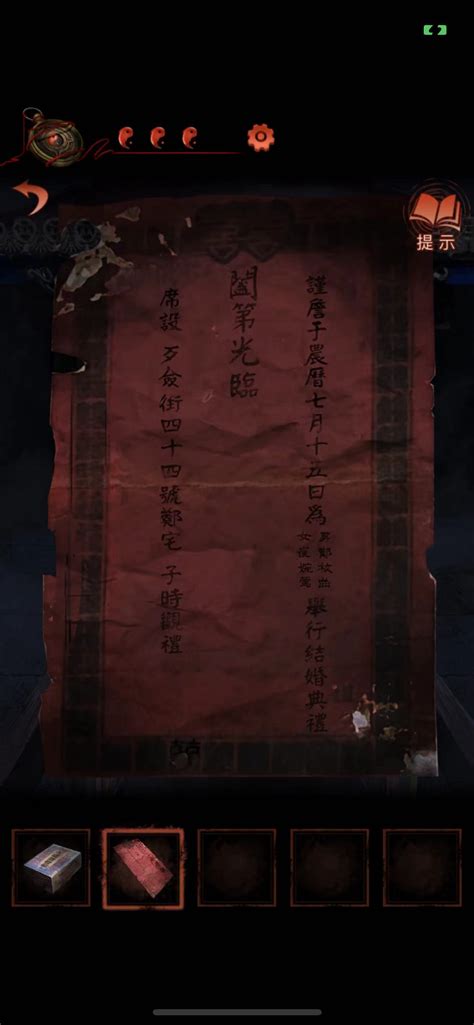 提示
謹詹于農曆七月十五日為
男鄭
女崔婉鶯
舉行結婚典禮
闔第光臨
席設 歹僉街四十四號鄭宅 子時觀禮